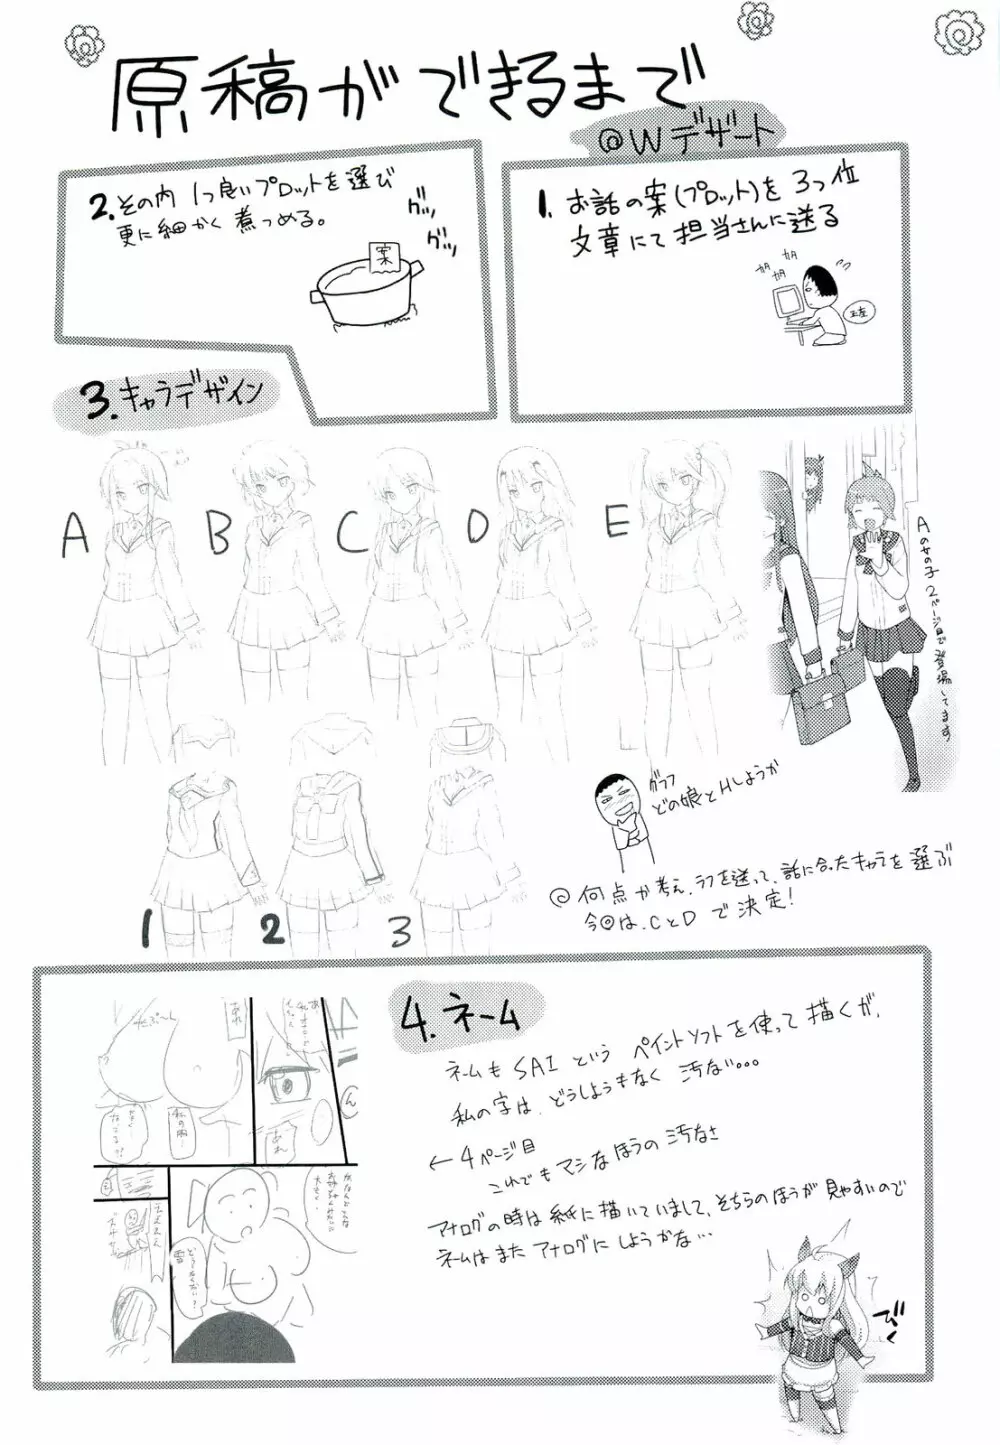 原稿ができるまで
@Wデザート
1. お話の案(プロット)を3つ位
文章にて担当さんに送る
カタ
カタ
カタ
2. その内1つ良いプロットを選び
更に細かく煮つめる。
グッ
グッ
案
3. キャラデザイン
A
B
C
D
E
Aの女の子2ページ目で登場してます
1
2
3
グフフ
どの娘とHしようか
◎何点か考え、ラフを送って、話に合ったキャラを選ぶ
今回は、CとDで決定!
4. ネーム
ネームもSAIというペイントソフトを使って描くが、
私の字は、どうしようもなく汚ない…。
←4ページ目
これでもマシなほうの汚なさ
アナログの時は紙に描いていまして、そちらのほうが見やすいので
ネームはまたアナログにしようかな…
たぷ〜ん
あれ
私の胸…
あれ
びくっ